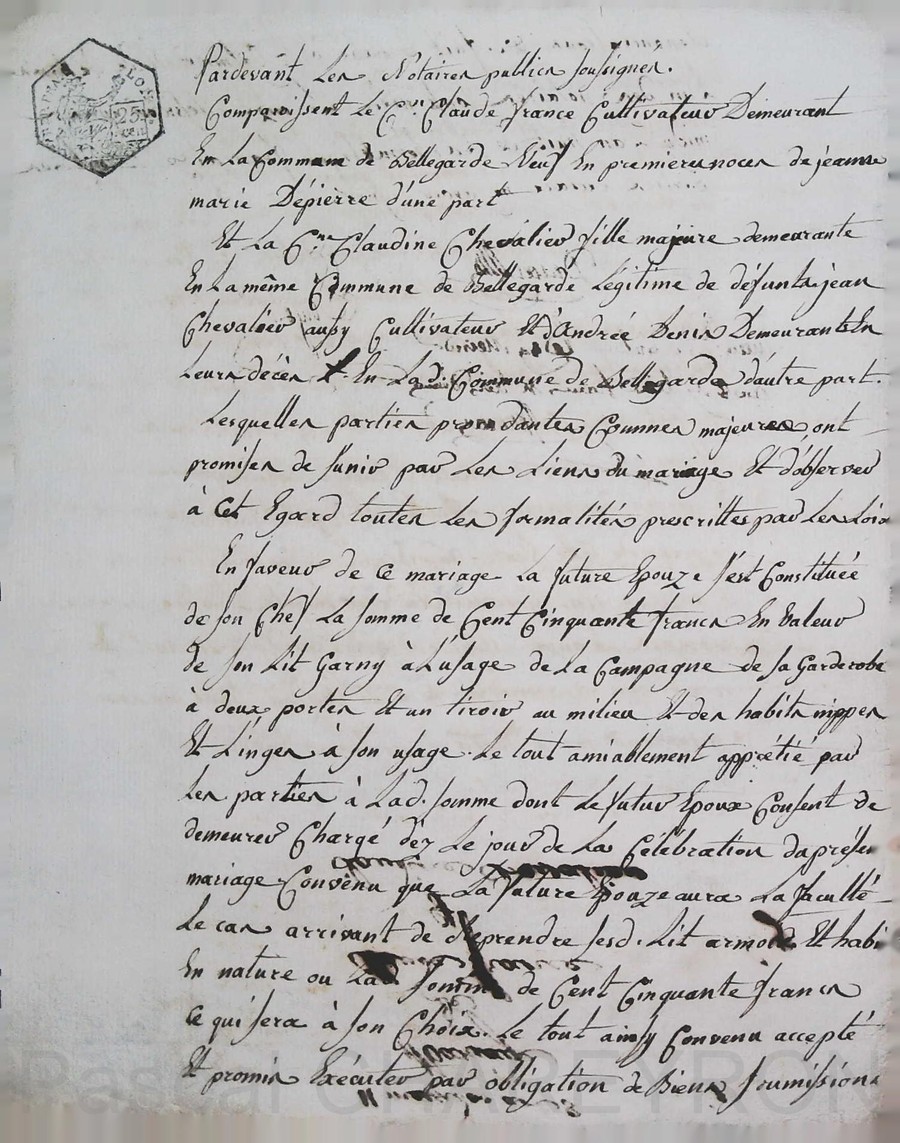 Pardevant Les Notaires publics soussignés.
Comparoissent Le C.en Claude france Cultivateur Demeurant
En La Commune de Bellegarde Veuf En premieres noces de jeanne
marie Dépierre d'une part
Et La C.ne Claudine Chevalier fille majeure demeurante
En La même Commune de Bellegarde Légitime de défunts jean
Chevalier aussy Cultivateur Et d'Andrée Denis Demeurants En
Leurs décès En La d. Commune de Bellegarde d'autre part.
Lesquelles parties comme majeures ont
promises de s'unir par Les Liens du mariage Et d'observer
à cet Egard toutes Les formalités prescrittes par Les Lois
En faveur de ce mariage La future Epouze s'est Constituée
de son Chef La somme de Cent Cinquante francs En Valeur
de son Lit Garny à L'usage de La Campagne de sa Garderobe
à deux portes Et un tiroir au milieu Et des habits nippes
Et Linges à son usage. Le tout amiablement apprétié par
Les parties à Lad. somme dont Le futur Epoux Consent de
demeurer Chargé dez Le jour de La Célébration du présent
mariage Convenu que La future Epouze aura La faculté
Le cas arrivant de Reprendre sesd. Lit armoire Et habi
En nature ou Lad. somme de Cent Cinquante francs
ce qui sera à son Choix. Le tout ainsy Convenu accepté
Et promis Exécuter par obligation de Biens soumissions